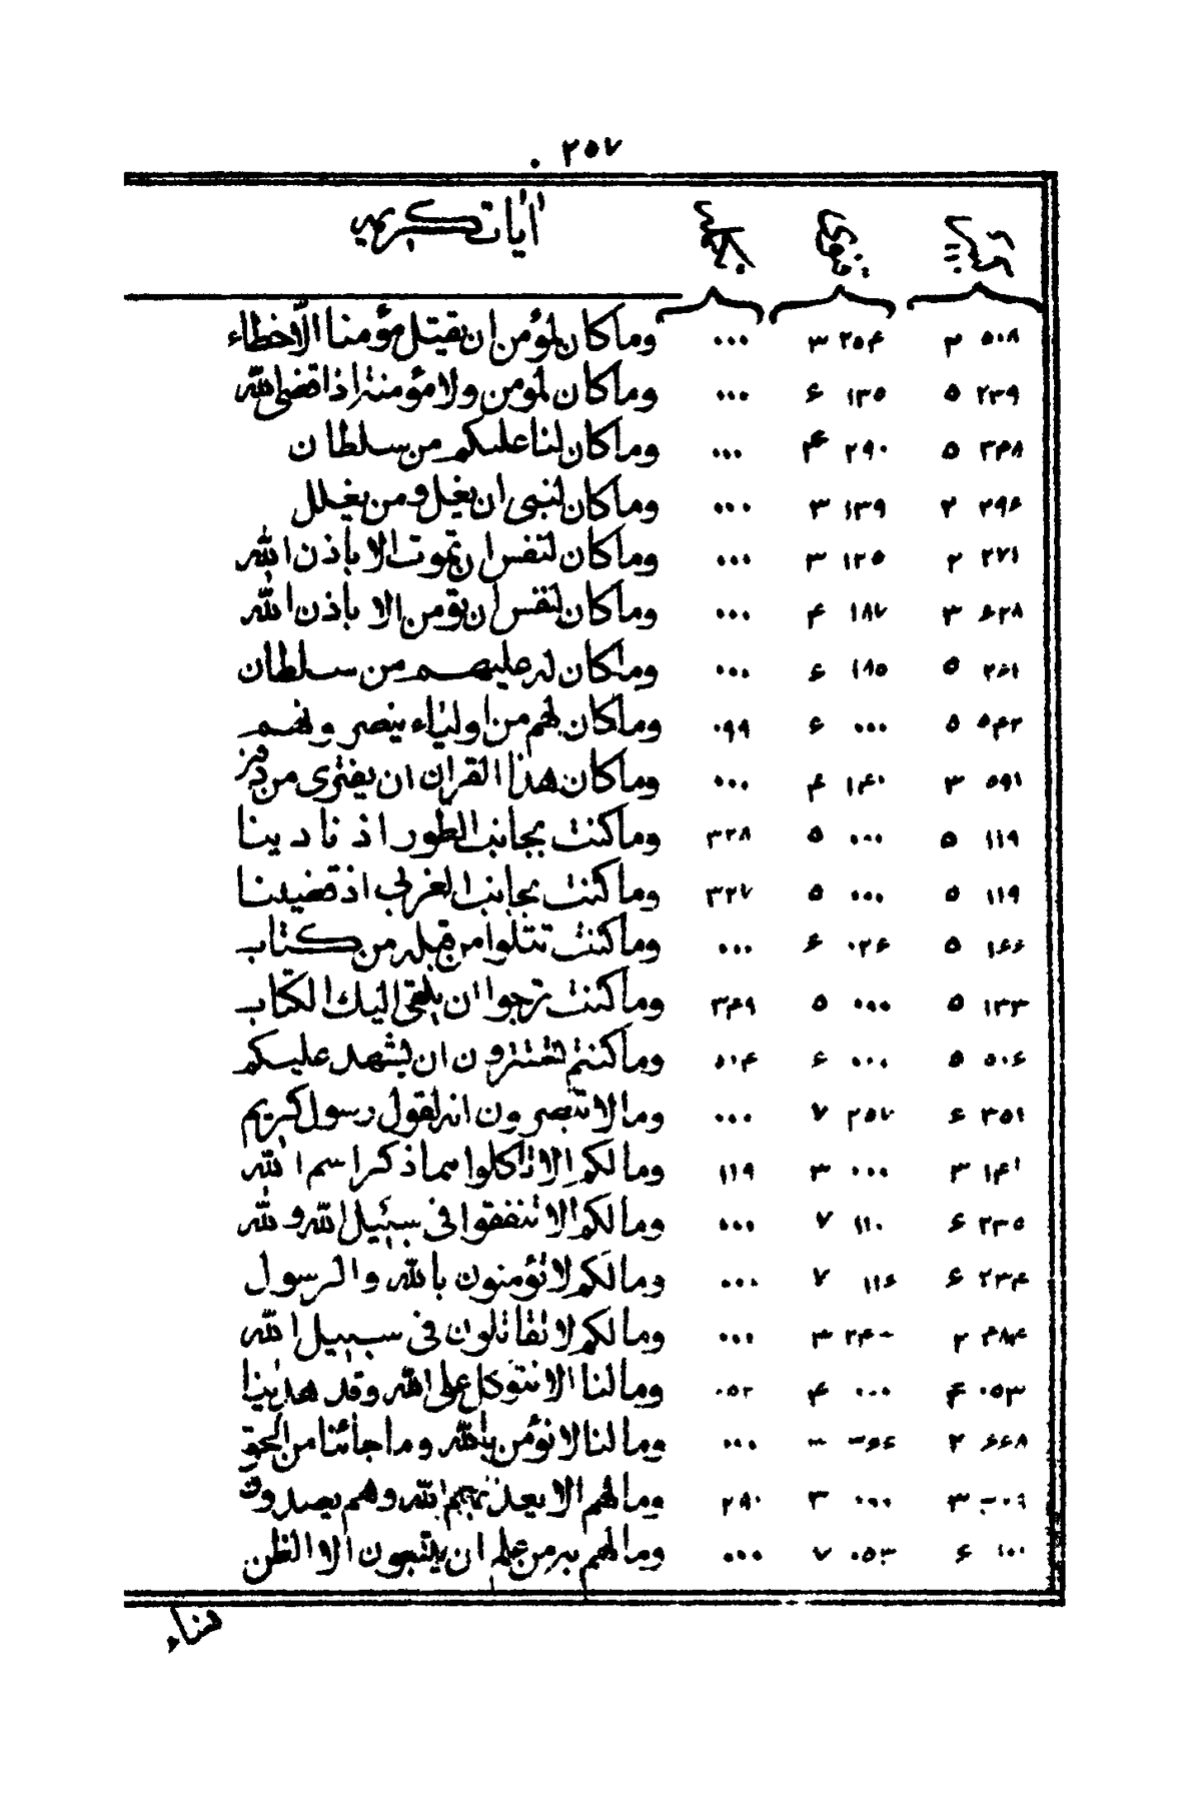 ٢٥٧ .
اٰيات كريمه
٥٠٨ ٣ ٢٥۴ ٣ ٠٠٠ وما كان لمؤمن ان يقتل مؤمنا الّا خطاء
٢٣٩ ٥ ١٣٥ ۶ ٠٠٠ وما كان لمؤمن ولا مؤمنة اذا قضى الله
٣٣٨ ٥ ٢٩٠ ۴ ٠٠٠ وما كان لنا عليكم من سلطان
٢٩۶ ٢ ١٣٩ ٣ ٠٠٠ وما كان لنبى ان يغل ومن يغلل
٢٧١ ٢ ١٢٥ ٣ ٠٠٠ وما كان لنفس ان تموت الا باذن الله
۶٢٨ ٣ ١٨٧ ۴ ٠٠٠ وما كان لنفس ان تؤمن الا باذن الله
٢۶١ ٥ ١٨٥ ۶ ٠٠٠ وما كان له عليهم من سلطان
٥۴٢ ٥ ٠٠٠ ۶ ٠٩٩ وما كان لهم من اولياء ينصرونهم
٥٩١ ٣ ١۴٠ ۴ ٠٠٠ وما كان هذا القران ان يفترى من دون
١١٩ ٥ ٠٠٠ ٥ ٣٢٨ وما كنت بجانب الطور اذ نادينا
١١٩ ٥ ٠٠٠ ٥ ٣٢٧ وما كنت بجانب الغربى اذ قضينا
١۶۶ ٥ ٠٢۶ ۶ ٠٠٠ وما كنت تتلوا من قبله من كتاب
١٣٣ ٥ ٠٠٠ ٥ ٣۴٩ وما كنت ترجوا ان يلقى اليك الكتاب
٥٠۶ ٥ ٠٠٠ ۶ ٥١۴ وما كنتم تستترون ان يشهد عليكم
٣٥١ ۶ ٢٥٧ ٧ ٠٠٠ وما لا تبصرون انه لقول رسول كريم
١۴١ ٣ ٠٠٠ ٣ ١١٩ وما لكم الا تاكلوا مما ذكر اسم الله
٢٣٥ ۶ ١١٠ ٧ ٠٠٠ وما لكم الا تنفقوا فى سبيل الله ولله
٢٣۴ ۶ ١١۶ ٧ ٠٠٠ وما لكم لا تؤمنون بالله والرسول
۴٨۴ ٢ ٢۴٠ ٣ ٠٠٠ وما لكم لا تقاتلون فى سبيل الله
٠٥٣ ۴ ٠٠٠ ۴ ٠٥٢ وما لنا الا نتوكل على الله وقد هدينا
۶۶٨ ٢ ۶۶ ٠٠٠ وما لنا لا نؤمن بالله وما جائنا من الحق
٣ ٠٠٠ ٣ ٢٨٠ وما لهم الا يعذبهم الله وهم يصدون
١٠٠ ۶ ٠٥٣ ٧ ٠٠٠ وما لهم به من علم ان يتبعون الا الظن